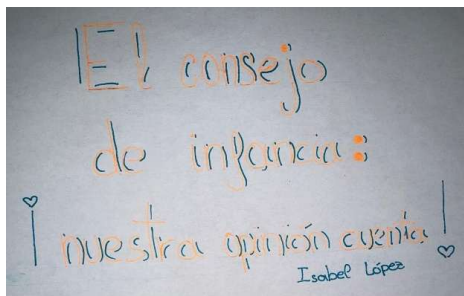 El consejo
de infancia:
¡nuestra opinión cuenta!
Isabel López